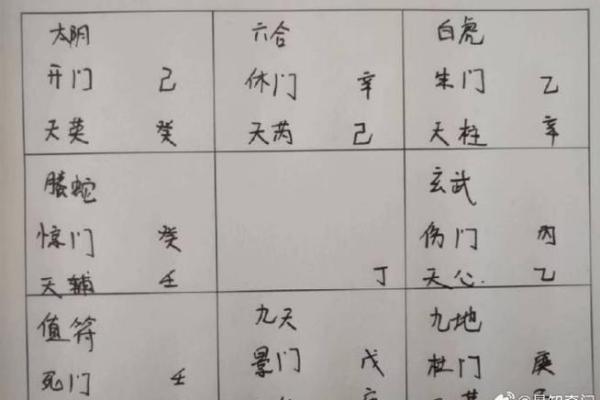 太阴
开门 己
天英 癸
六合
休门 辛
天芮 己
白虎
生门 乙
天柱 辛
螣蛇
惊门 癸
天辅 壬
丁
玄武
伤门 丙
天心 乙
值符
死门 壬
九天
景门 戊
九地
杜门 庚